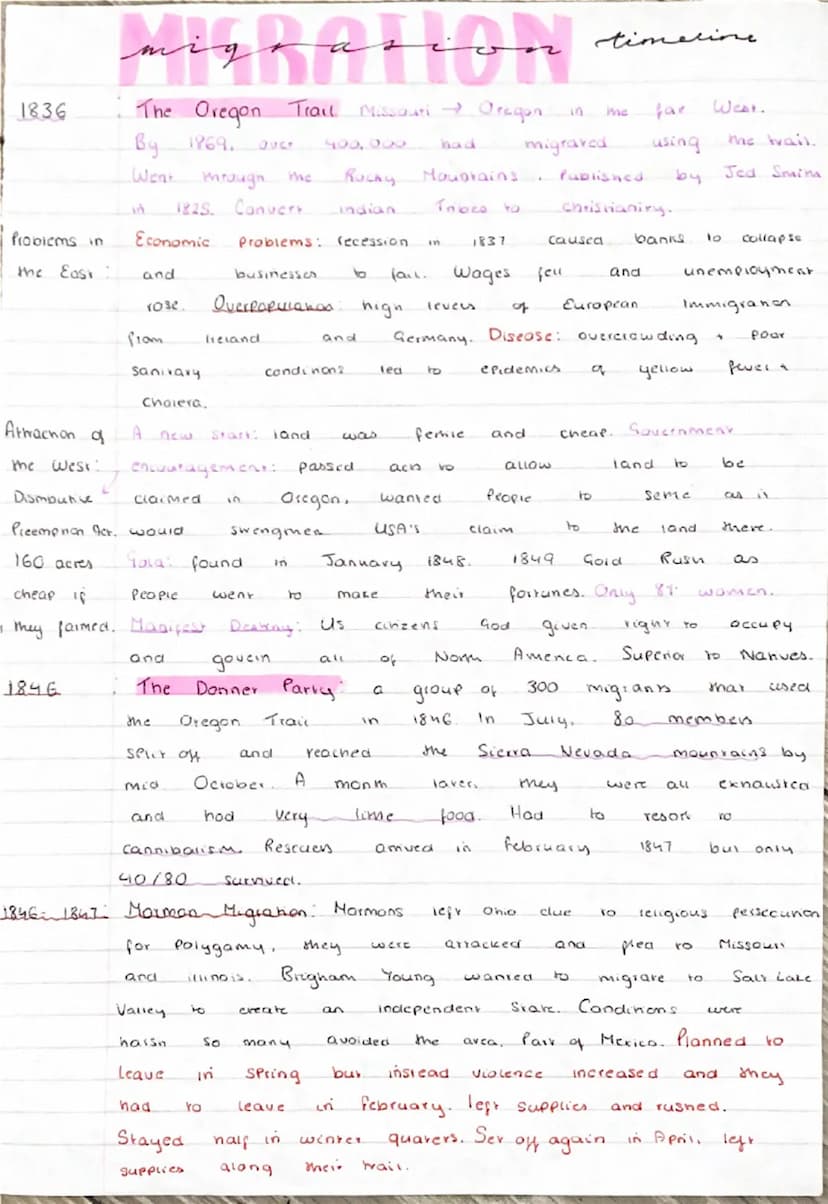 MIGRATION
migration timeline
1836 : The Oregon Trail Missouri → Oregon in the far West.
By 1869, over 400,000 had migrated using the trail.
Went through the Rocky Mountains. Published by Jed Smith
in 1825. Convert indian Tribes to christianity.
Problems in Economic problems: recession in 1837 caused banks to collapse
the East: and businesses to fail. Wages fell and unemployment
rose. Overpopulation: high levels of European Immigration
from Ireland and Germany. Disease: overcrowding + poor
sanitary conditions led to epidemics of yellow fever +
cholera.
Attraction of A new start: land was fertile and cheap. Government
the West: encouragement: passed acts to allow land to be
Distributive claimed in Oregon, wanted people to settle as it
Preemption Act. would strengthen USA's claim to the land there.
160 acres Gold: found in January 1848. 1849 Gold Rush as
cheap if people went to make their fortunes. Only 8% women.
they farmed. Manifest Destiny: US citizens God given right to occupy
and govern all of North America. Superior to Natives.
1846 : The Donner Party: a group of 300 migrants that used
the Oregon Trail in 1846. In July, 80 members
split off and reached the Sierra Nevada mountains by
mid October. A month later, they were all exhausted
and had very little food. Had to resort to
cannibalism. Rescuers arrived in February 1847 but only
40/80 survived.
1846-1847: Mormon Migration: Mormons left Ohio due to religious persecution
for polygamy, they were attacked and fled to Missouri
and illinois. Brigham Young wanted to migrate to Salt Lake
Valley to create an independent State. Conditions were
harsh so many avoided the area. Part of Mexico. Planned to
leave in spring but instead violence increased and they
had to leave in february. left supplies and rushed.
Stayed half in winter quarters. Set off again in April, left
supplies along their trail.